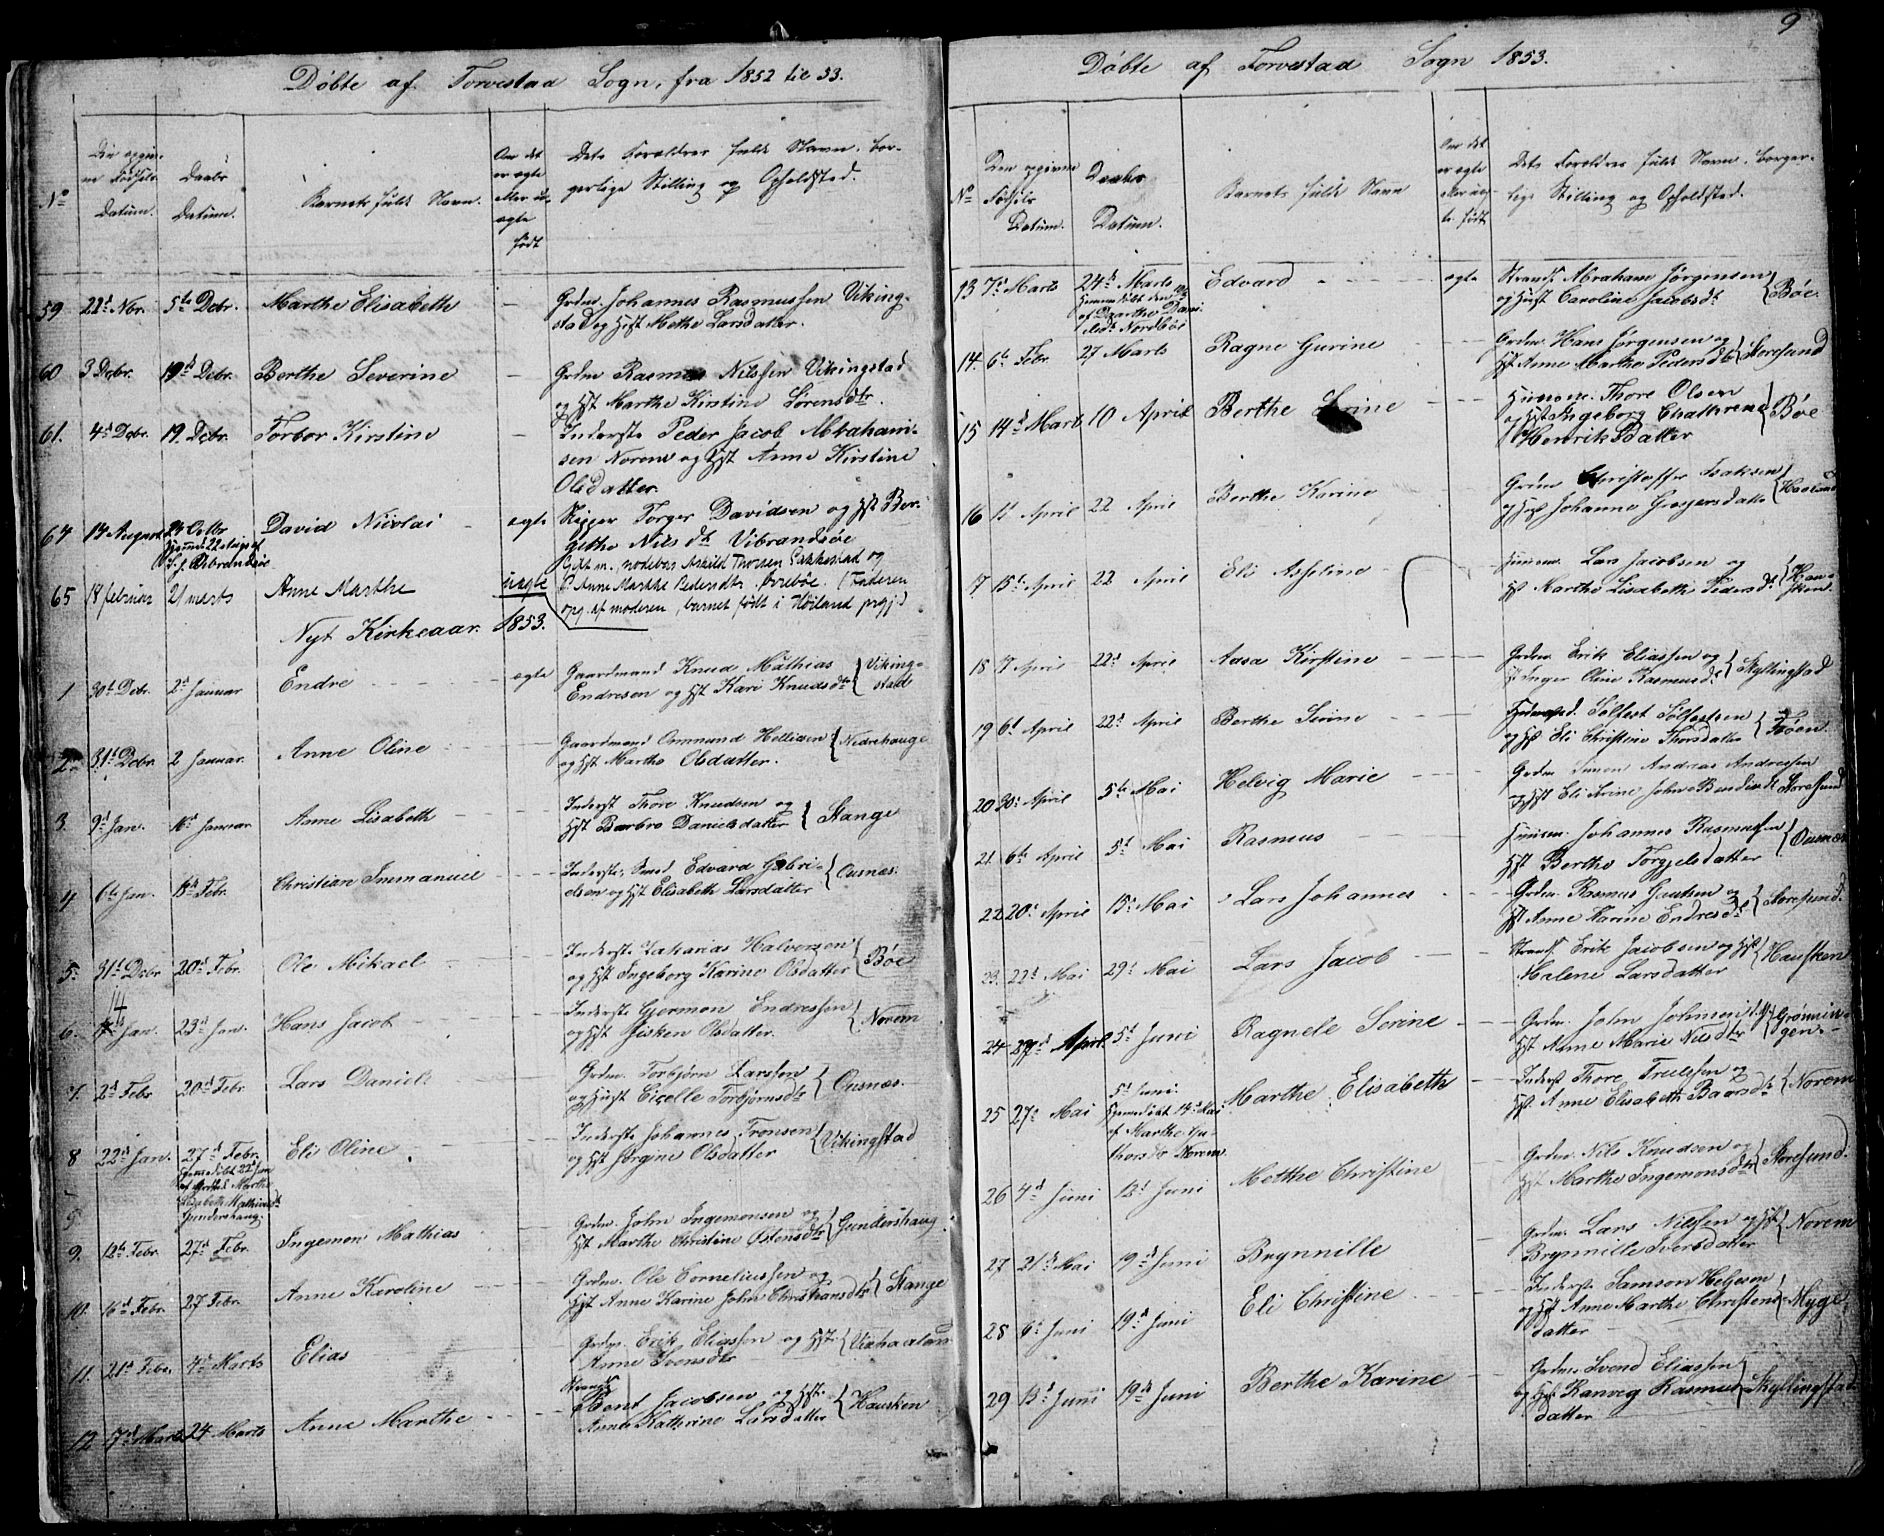 Døbte af Torvestad Sogn, fra 1852 til 53.
No
Den opgivne Fødsels Datum.
Daabs Datum.
Barnets fulde Navn.
Om det er ægte eller uægte født
Dets Forældres fulde Navn, borgerlige Stilling og Opholdsted.
59 22d Nbr. 5te Decbr. Marthe Elisabeth — Grdm. Johannes Rasmussen Viking-
stad og Hst Methe Larsdatter.
60 3 Decbr. 19d Debr. Berthe Severine — Grdm Rasmus Nilssen Vikingstad
og Hst Marthe Kirstine Sørensdtr.
61. 4d Dcbr. 19. Dcbr. Torbor Kirstine — Inderste Peder Jacob Abraham-
sen Norem og Hst Anne Kirstine
Olsdatter.
64 14 August 24 Octbr David Nicolai - ægte Skipper Torger Davidsen og Hst Ber-
githe Nilsdtr Vibrandsøe
65 18 februar 21 marts Anne Marthe uægte Gift m., nødebas Askild Thorsen Gakkestad og
P. Anne Marthe Pedersdtr, Borebøe. (Faderen
opg. af moderen, barnet født i Høiland prgj.)
Nyt Kirkeaar. 1853.
1 30d Dcbr. 2d Januar Endre - ægte Gaardmand Knud Mathias
Endresen og Hst Kari Knudsdtr { Viking-
stad
2. 31d Dcbr. 2 Januar. Anne Oline Gaardmand Ommund Helliesen
og Hst Marthe Olsdatter. { Nedrehauge
3. 9d Jan. 16d Januar Anne Lisabeth Inderst Thore Knudsen og
Hst Barbro Danielsdatter { Stange
4 6te Jan. 13d Febr. Christian Immanuel Inderste, Smed Edvard Gabri-
elsen og Hst Elisabeth Larsdatter { Ousnes.
5. 31d Dcbr 20d Febr. Ole Mikael Inderste Zakarias Halvorsen
og Hst Ingeborg Karine Olsdatter { Bøe
14
6. Jan. 23d Jan. Hans Jacob Inderste Gjermon Endressen
og Hst Olsdatter. { Norem
7. 2d Febr 20d Febr. Lars Daniel Grdm. Torbjørn Larssen
og Hust Cicelle Torbjørnsdtr { Ousnæs.
8 22d Jan. 27d Febr. Eli Oline Inderste Johannes Tronsen
og Hst Jørgine Olsdatter { Vikingstad
Hjemmedøbt 22 Jan
Marthe
Lisabeth Mathiasdtr
Gundershaug.
9. 12te Febr. 27d Febr. Ingemon Mathias Grdm. John Ingemonsen og
Hst Marthe Christine Østensdtr { Gundershaug
10. 16d Febr. 27 Febr. Anne Karoline Grdm. Ole Corneliussen og
Hst Anne Karine John Christiansdtr { Stange
11. 21d Febr. 4d Marts Elias Grdm. Erik Eliassen og Hst.
Anne Svensdtr
12 17d Marts 24 Marts Anne Marthe Strands. Jacobsen og Hst.
Anne Kathrine Larsdatter { Hausken
9
Døbte af Torvestad Sogn 1853.
No
Den opgivne Fødsels Datum.
Daabs Datum.
Barnets fulde Navn
Om det er ægte eller uægte født
Dets Forældres fulde Navn, borger-
lige Stilling og Opholdsted.
13 7d Marts 24d Marts Edvard ægte Strands. Abraham Jørgensen
og Hust Caroline Jacobsdtr { Bøe
14. 6te Febr. 27 Marts Ragne Gurine Grdm. Hans Jørgensen og
Hst Anne Marthe Pedersdtr { Storesund
15 14d Marts 10 April Berthe Serine Husm. Thore Olsen
og Hst Ingeborg Chathrene { Bøe
Henriksdatter
16 April 22 April Berthe Karine Grdm Christoffer Isaksen
og Hst Johanne Gregersdatter { Haaland
17 15d April 22 April Eli Asseline Husm. Lars Jacobsen og
Hst Marthe Lisabeth Pedersdtr { Hau-
sken.
18 7 April 22d April Aasa Kirstine Grdm. Erik Eliassen og
Hst Inger Oline Rasmusdtr { Skyllingstad
19 6d April 22d April Berthe Serine Sølfest Sølfestsen
og Hst Eli Christine Thorsdatter
20 30d April 5te Mai Helvig Marie Grdm. Simon Andreas Andressen
og Hst Eli Serine John Bendiksdtr Storesund
21. 6te April 5d Mai Rasmus Husm. Johannes Rasmussen
Hst Berthe Torggelsdatter { Ousnæs
22 20d April 15d Mai Lars Johannes Grdm. Rasmus Gautsen og
Hst Anne Karine Endresdtr { Storesund
23. 22d Mai 29d Mai Lars Jacob Strands. Erik Jacobsen og Hst
Malene Larsdatter { Hausken
24 April 5d Juni Ragnele Serine Grdm. John Johnsen og
Hst Anne Marie Nilsdtr { Grønnin-
gen.
25 27d Mai 5d Juni. Marthe Elisabeth Inderst Thore Trulssen og
Hst. Anne Elisabeth Baardsdtr { Norem
26 4d Juni 12d Juni Methe Christine Grdm. Nils Knudsen og
Hst Marthe Ingemonsdtr { Storesund.
27 21d Mai 19d Juni Brynnille Grdm. Lars Nilssen og Hst { Norem
Brynnille Iversdatter
28 6d Juni 19d Juni Eli Christine Inderste Samson Helgesen
og Hst Anne Marthe Christens- { Myge
datter
29 13d Juni 19d Juni Berthe Karine Grdm. Svend Eliassen
og Hst Ranveg Rasmus- { Skyllingstad
datter